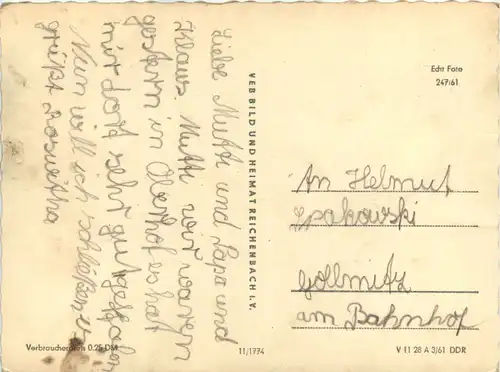 Liebe Mutti und Papa und
Klaus. Mutti wir waren
gestern in Oberhof es hat
mir dort sehr gut gefallen
Nun will ich schließen u.
grüßt Roswitha
VEB BILD UND HEIMAT REICHENBACH I. V.
Echt Foto
247/61
An Helmut
Gollmitz
am Bahnhof
Verbraucherpreis 0.25 DM
11/1774
V 11 28 A 3/61 DDR